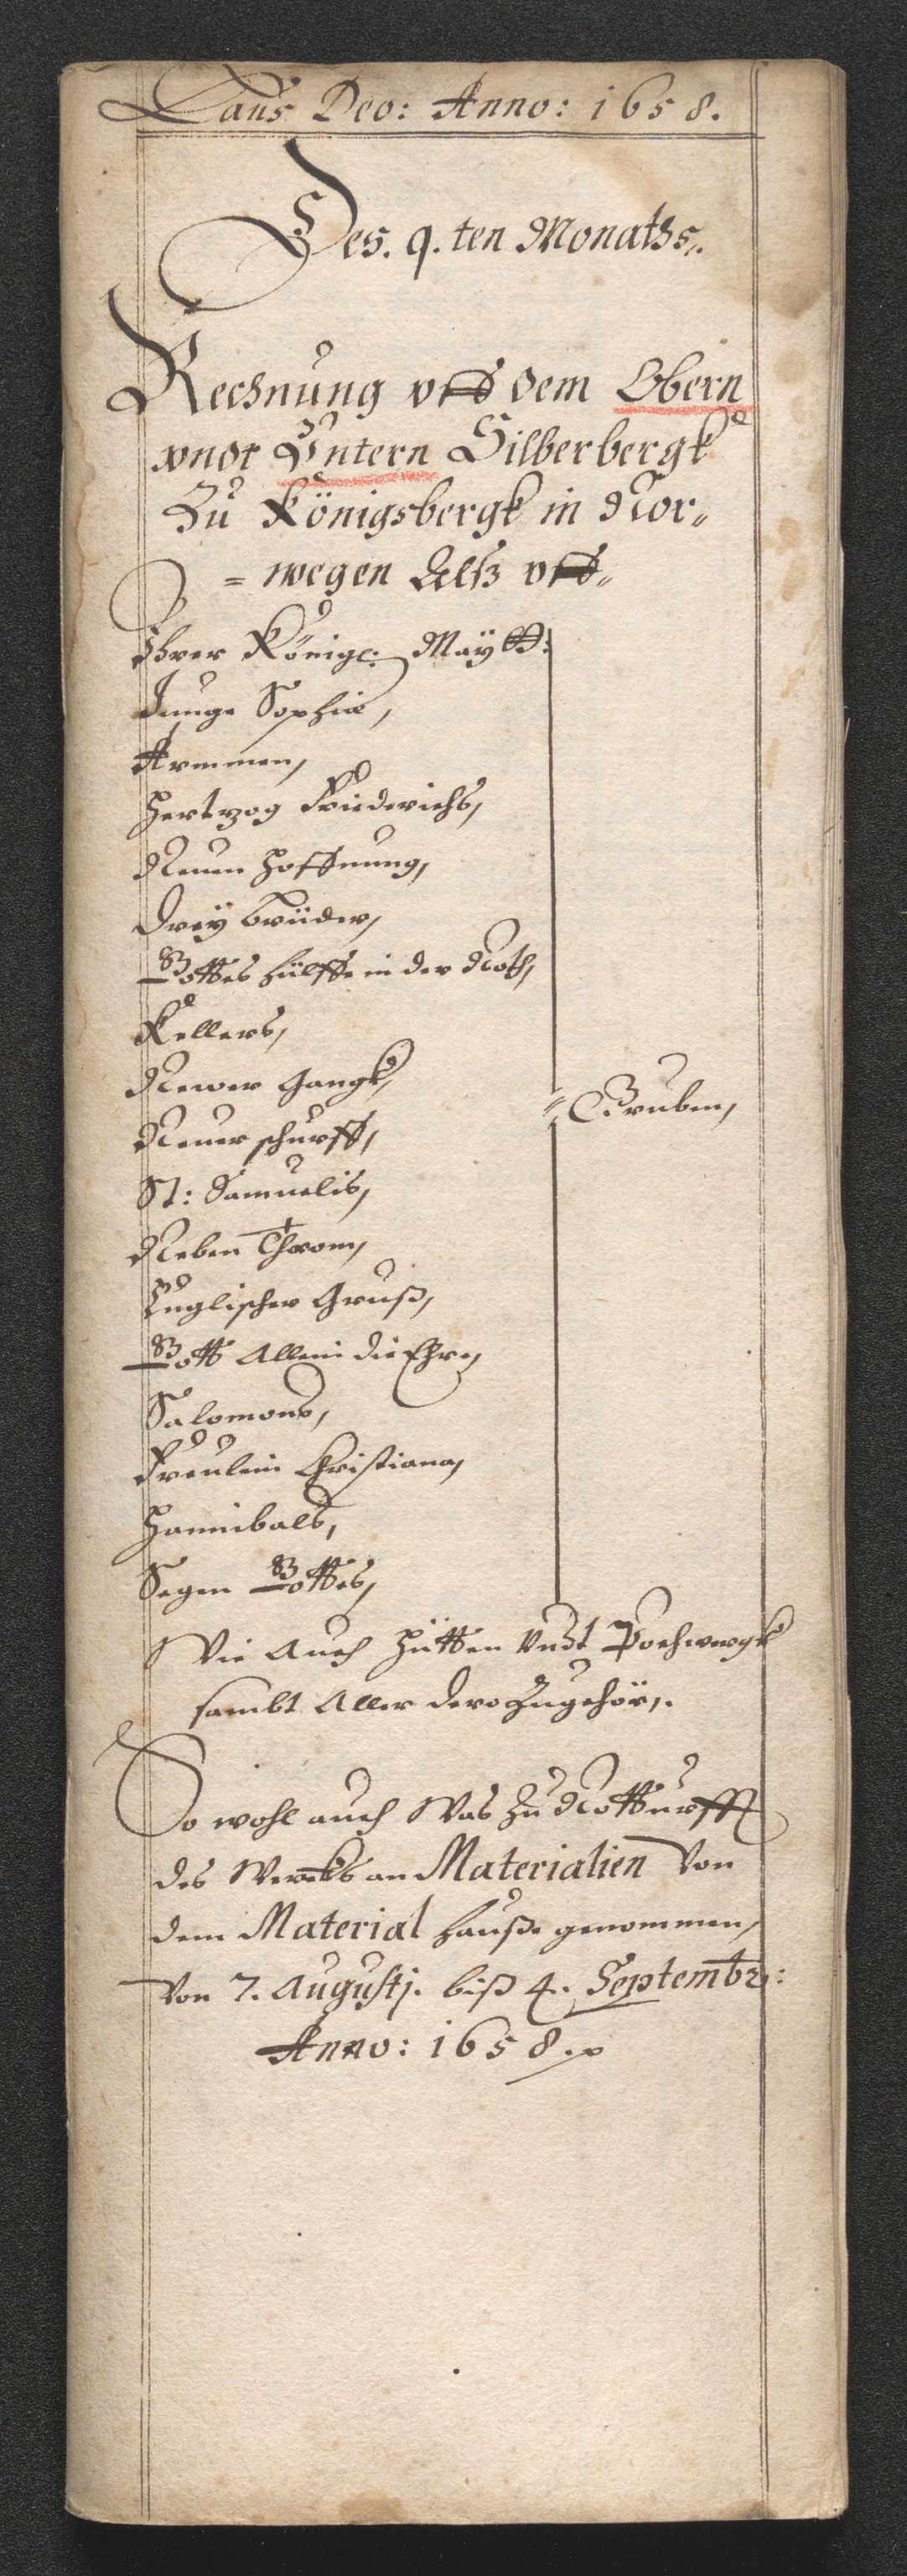 Laus Deo: Anno: 1658.
Des. 9. ten Monaths.
Rechnung vff dem Obern
vndt Vntern Silberbergk
Zu Königsbergk in Nor„
= wegen Alß vff„
Ihrer Königl: Maÿtt:
Junge Sophiæ,
Armmen,
Hertzog Friederichs,
Neuen Hoffnung,
Dreÿ Brüder,
Gottes Hülffe in der Noth,
Kellers,
Newer Gangk,
Neuer schurff,
Gruben,
St: Samuelis,
Neben Throm,
Englischer Gruß,
Gott Allein die Ehre,
Salomons,
Freulein Christiana,
Hannibals,
Segen Gottes,
Wie Auch Hütten Vndt Pochwergk
sambt Aller dero Zugehör,.
So wohl auch Was Zu Notturfft
des Wercks an Materialien Von
dem Material Hauße genommen,
Von 7. Augustj. biß 4. Septembr:
Anno: 1658.